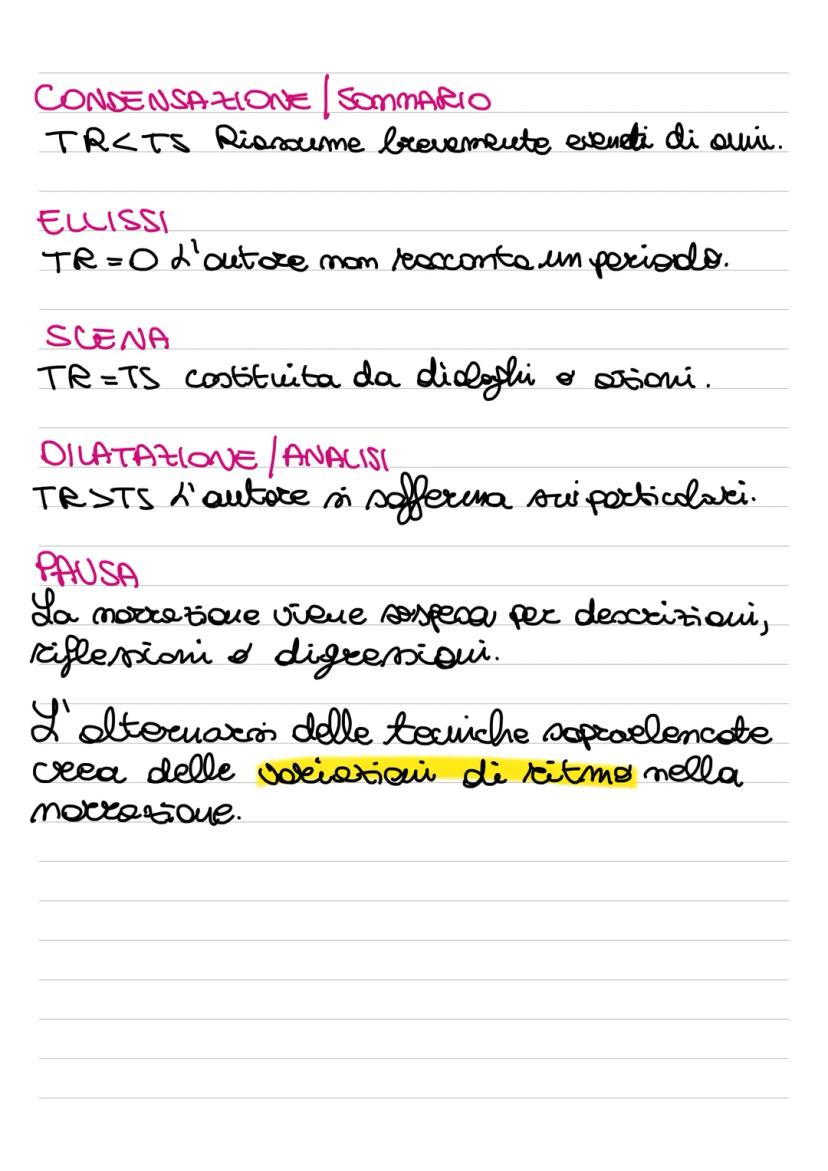 CONDENSAZIONE/SOMMARIO
TR<TS Riassume brevemente eventi di anni.
ELLISSI
TR=0 L'autore non racconta un periodo.
SCENA
TR=TS costituita da dialoghi e azioni.
DILATAZIONE/ANALISI
TR>TS L'autore si sofferma sui particolari.
PAUSA
La narrazione viene sospesa per descrizioni,
riflessioni e digressioni.
L'alternarsi delle tecniche sopraelencate
crea delle variazioni di ritmo nella
narrazione.